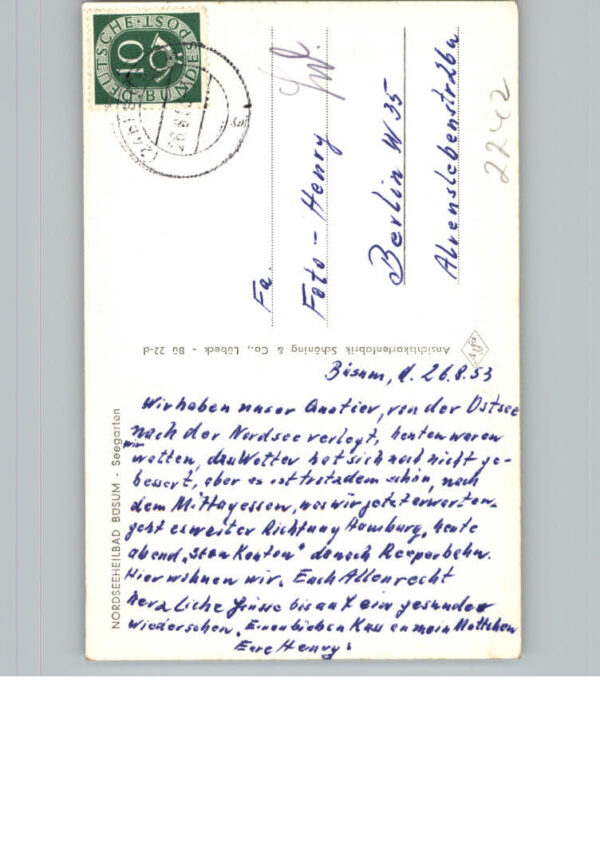 DEUTSCHE · BUNDESPOST
10
26.8.53
2242
Fa.
Foto-Henry
Berlin W 35
Alvenslebenstr 26a
Ansichtskartenfabrik Schöning & Co., Lübeck - Bü 22-d
NORDSEEHEILBAD BÜSUM - Seegarten
Büsum, d. 26.8.53
Wir haben unser Quatier, von der Ostsee
nach der Nordsee verlegt, heute waren
wir
watten, das Wetter hat sich noch nicht ge-
bessert, aber es ist trotzdem schön, nach
dem Mittagessen, was wir jetzt erwarten,
geht es weiter Richtung Hamburg, heute
abend "Stan Kenton" danach Reeperbahn.
Hier wohnen wir. Euch Allen recht
herzliche Grüsse bis auf ein gesundes
Wiedersehen. Einen lieben Kuss an mein Muttchen
Eure Henry.